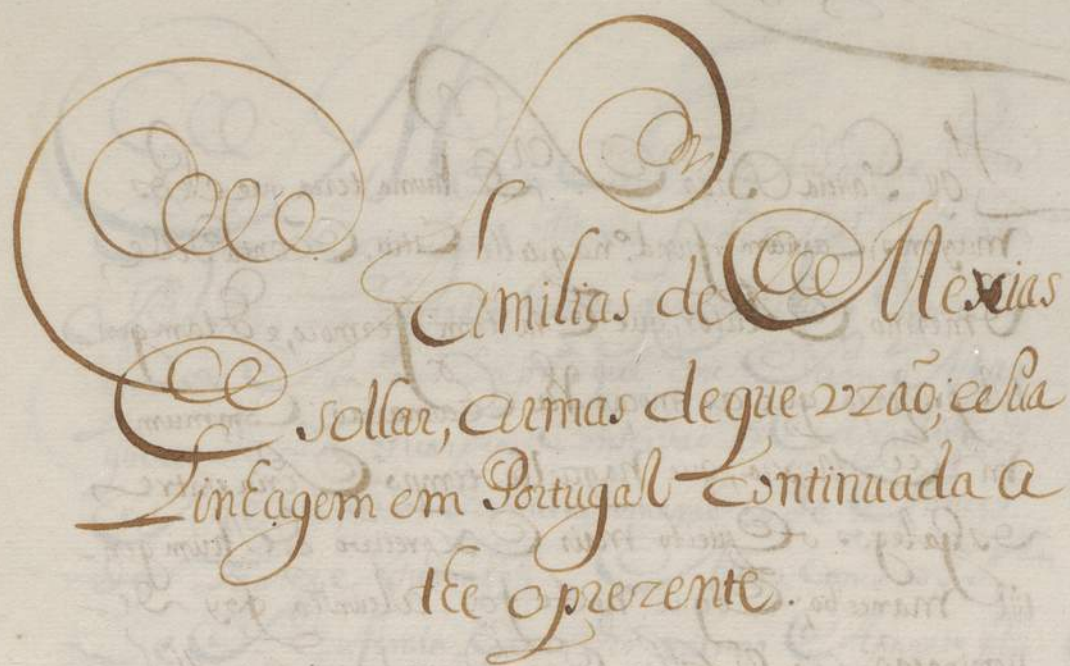 Familias de Mexias
E sollar, Armas de que vzaõ, e sua
Linhagem em Portugal Continuada a
the o prezente.